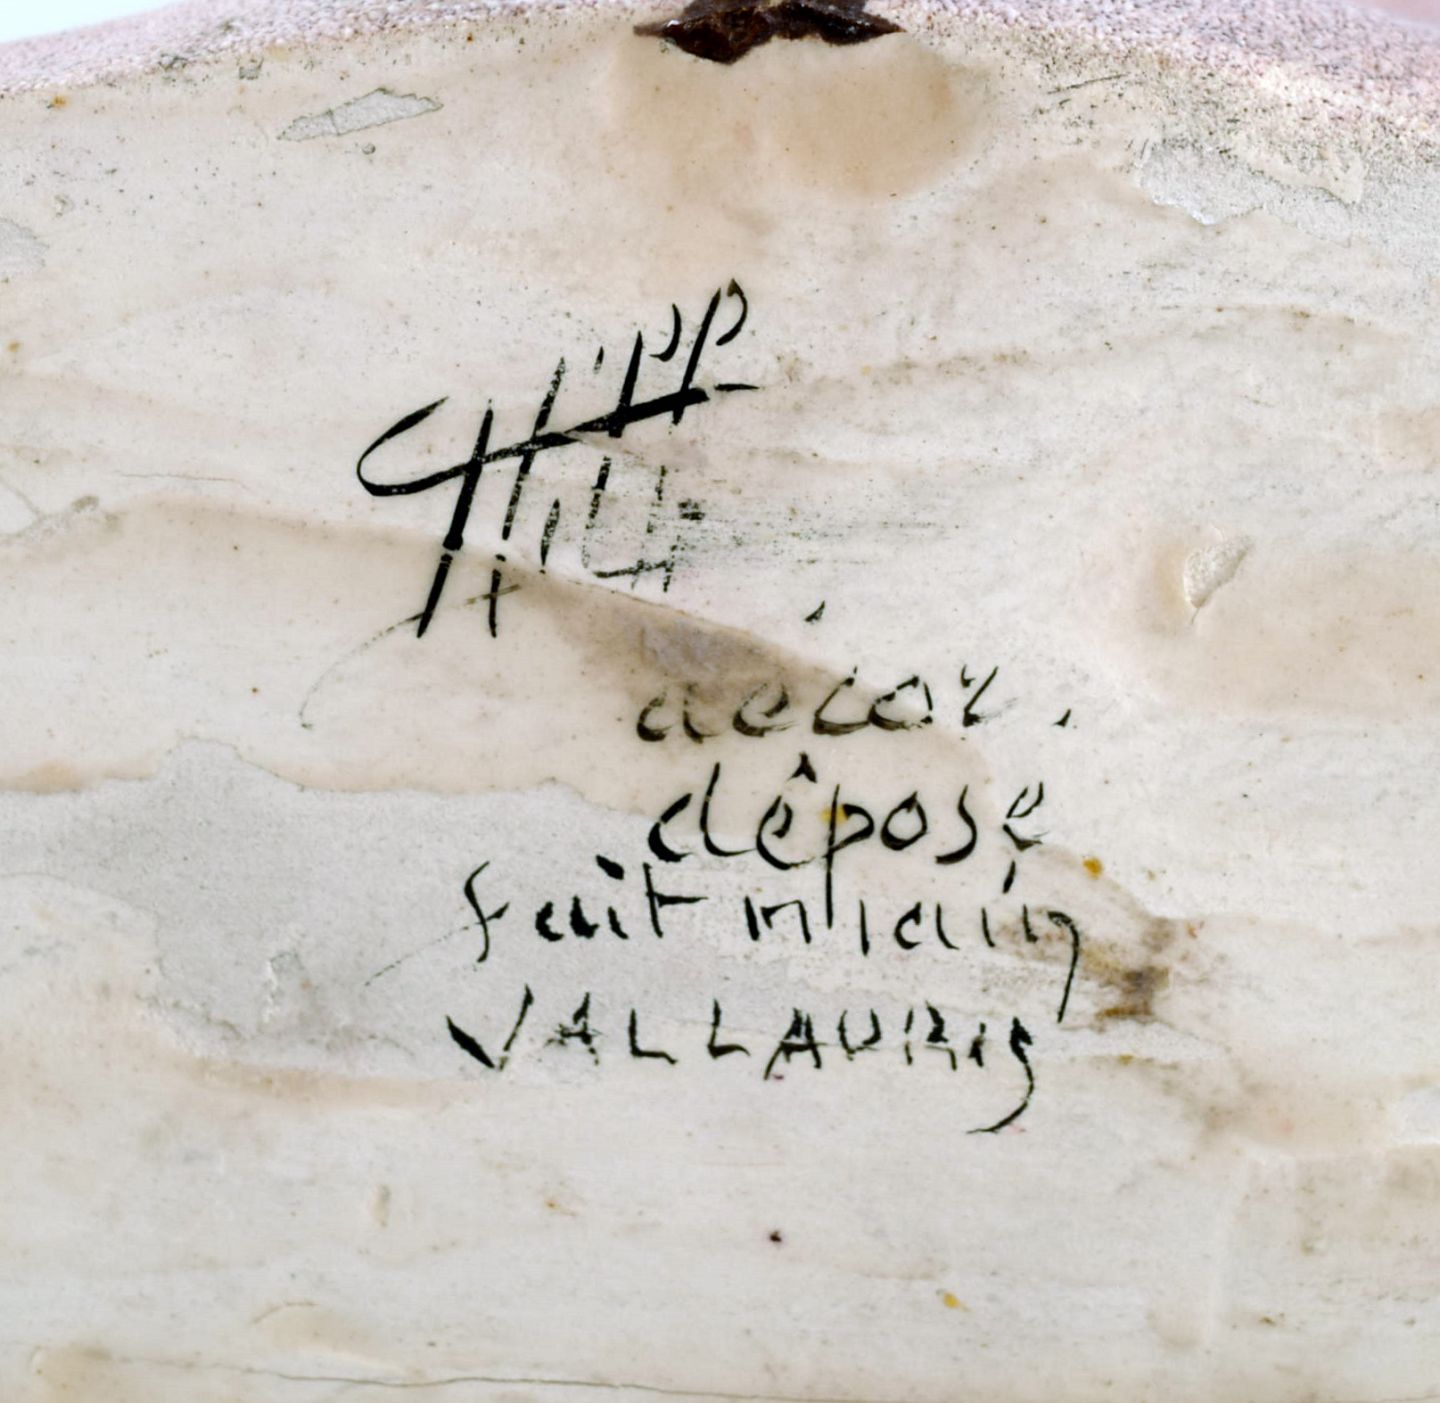 décor.
dêposé
fait main
VALLAURIS